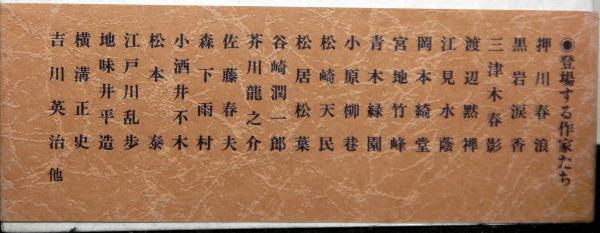 ◉登場する作家たち
押川春浪
黒岩涙香
三津木春影
渡辺黙禅
江見水蔭
岡本綺堂
宮地竹峰
青木緑園
小原柳巷
松崎天民
松居松葉
谷崎潤一郎
芥川龍之介
佐藤春夫
森下雨村
小酒井不木
松本泰
江戸川乱歩
地味井平造
横溝正史
吉川英治 他